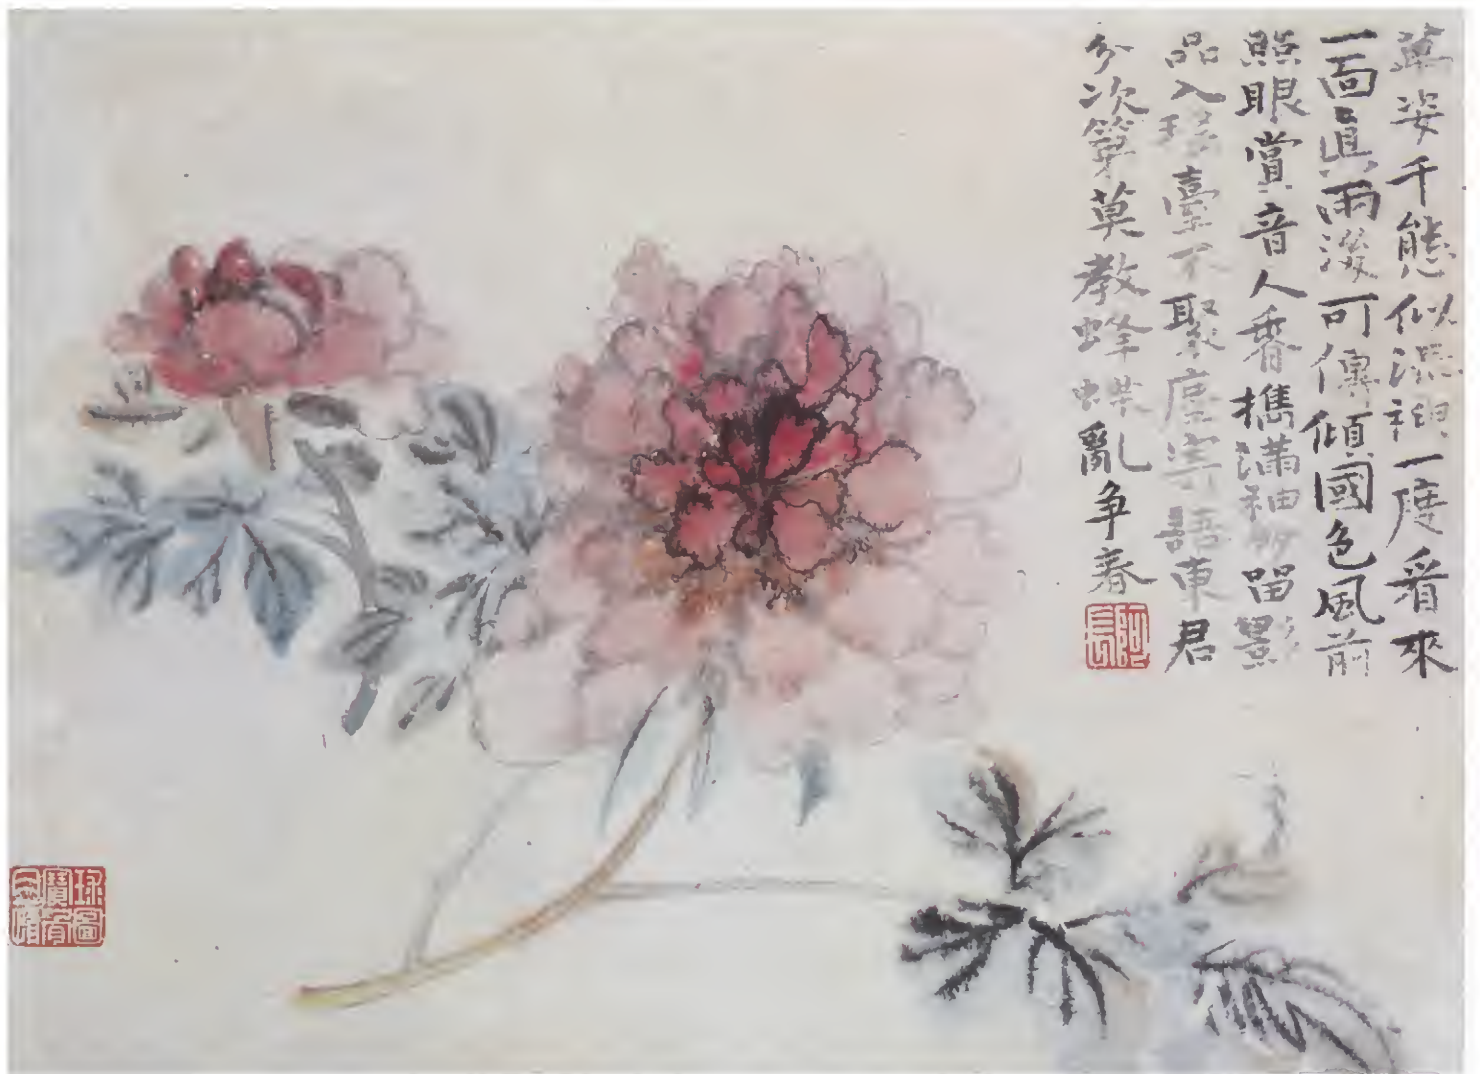 姿千態似一度看來
一面眞雨後可傳傾國色風前
照眼賞音人香攜滿袖留影
品入瑤臺不聚塵寄語東君
分次第莫教蜂蝶亂爭春
阿長
球圖寶